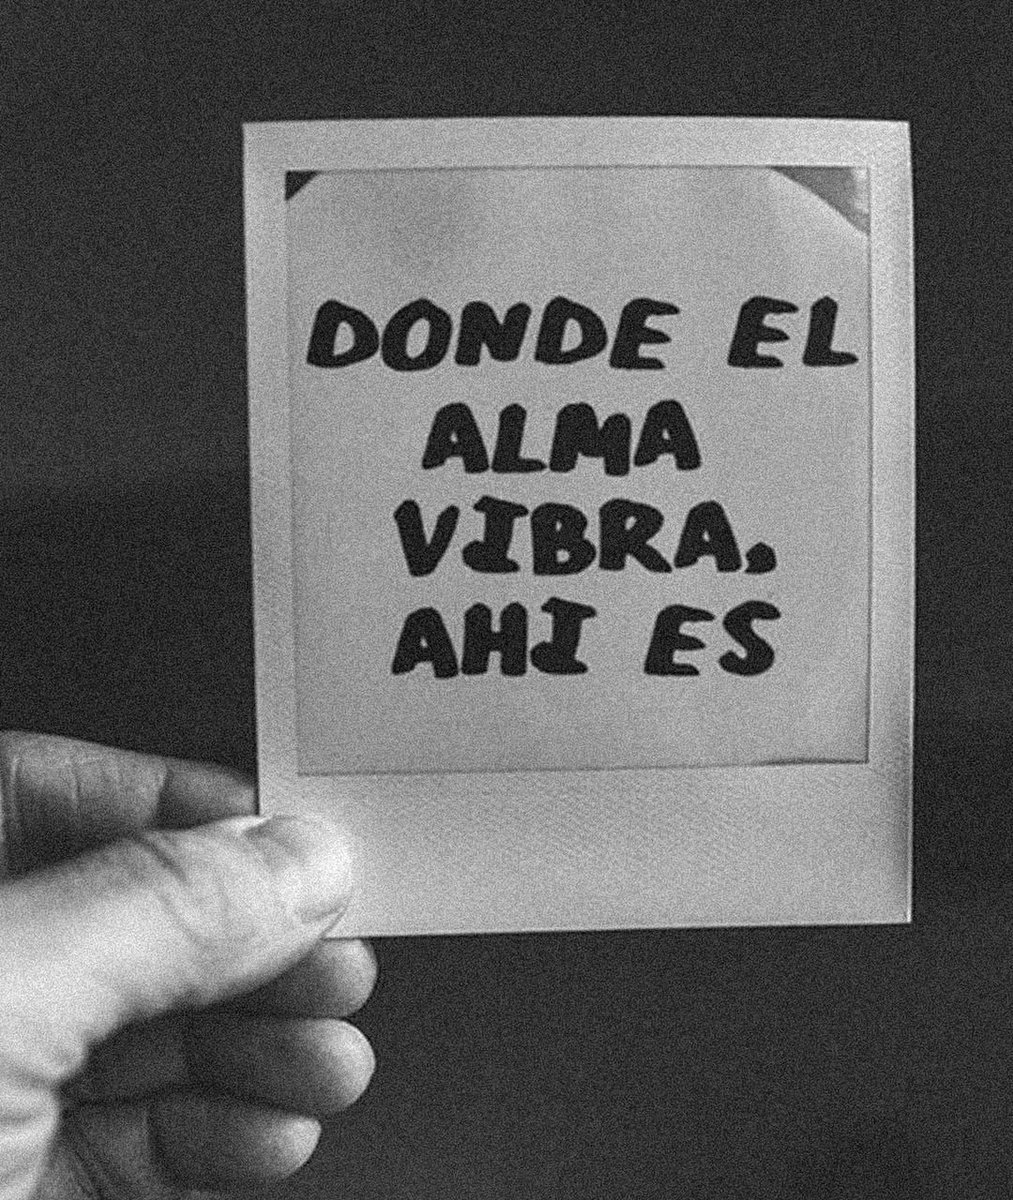 DONDE EL
ALMA
VIBRA,
AHI ES